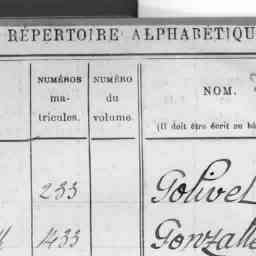 RÉPERTOIRE ALPHABÉTIQU
NUMÉROS ma- tricules.
NUMÉRO du volume
NOM.
(Il doit être écrit en bâ
233 Golivel
433 Gonzall